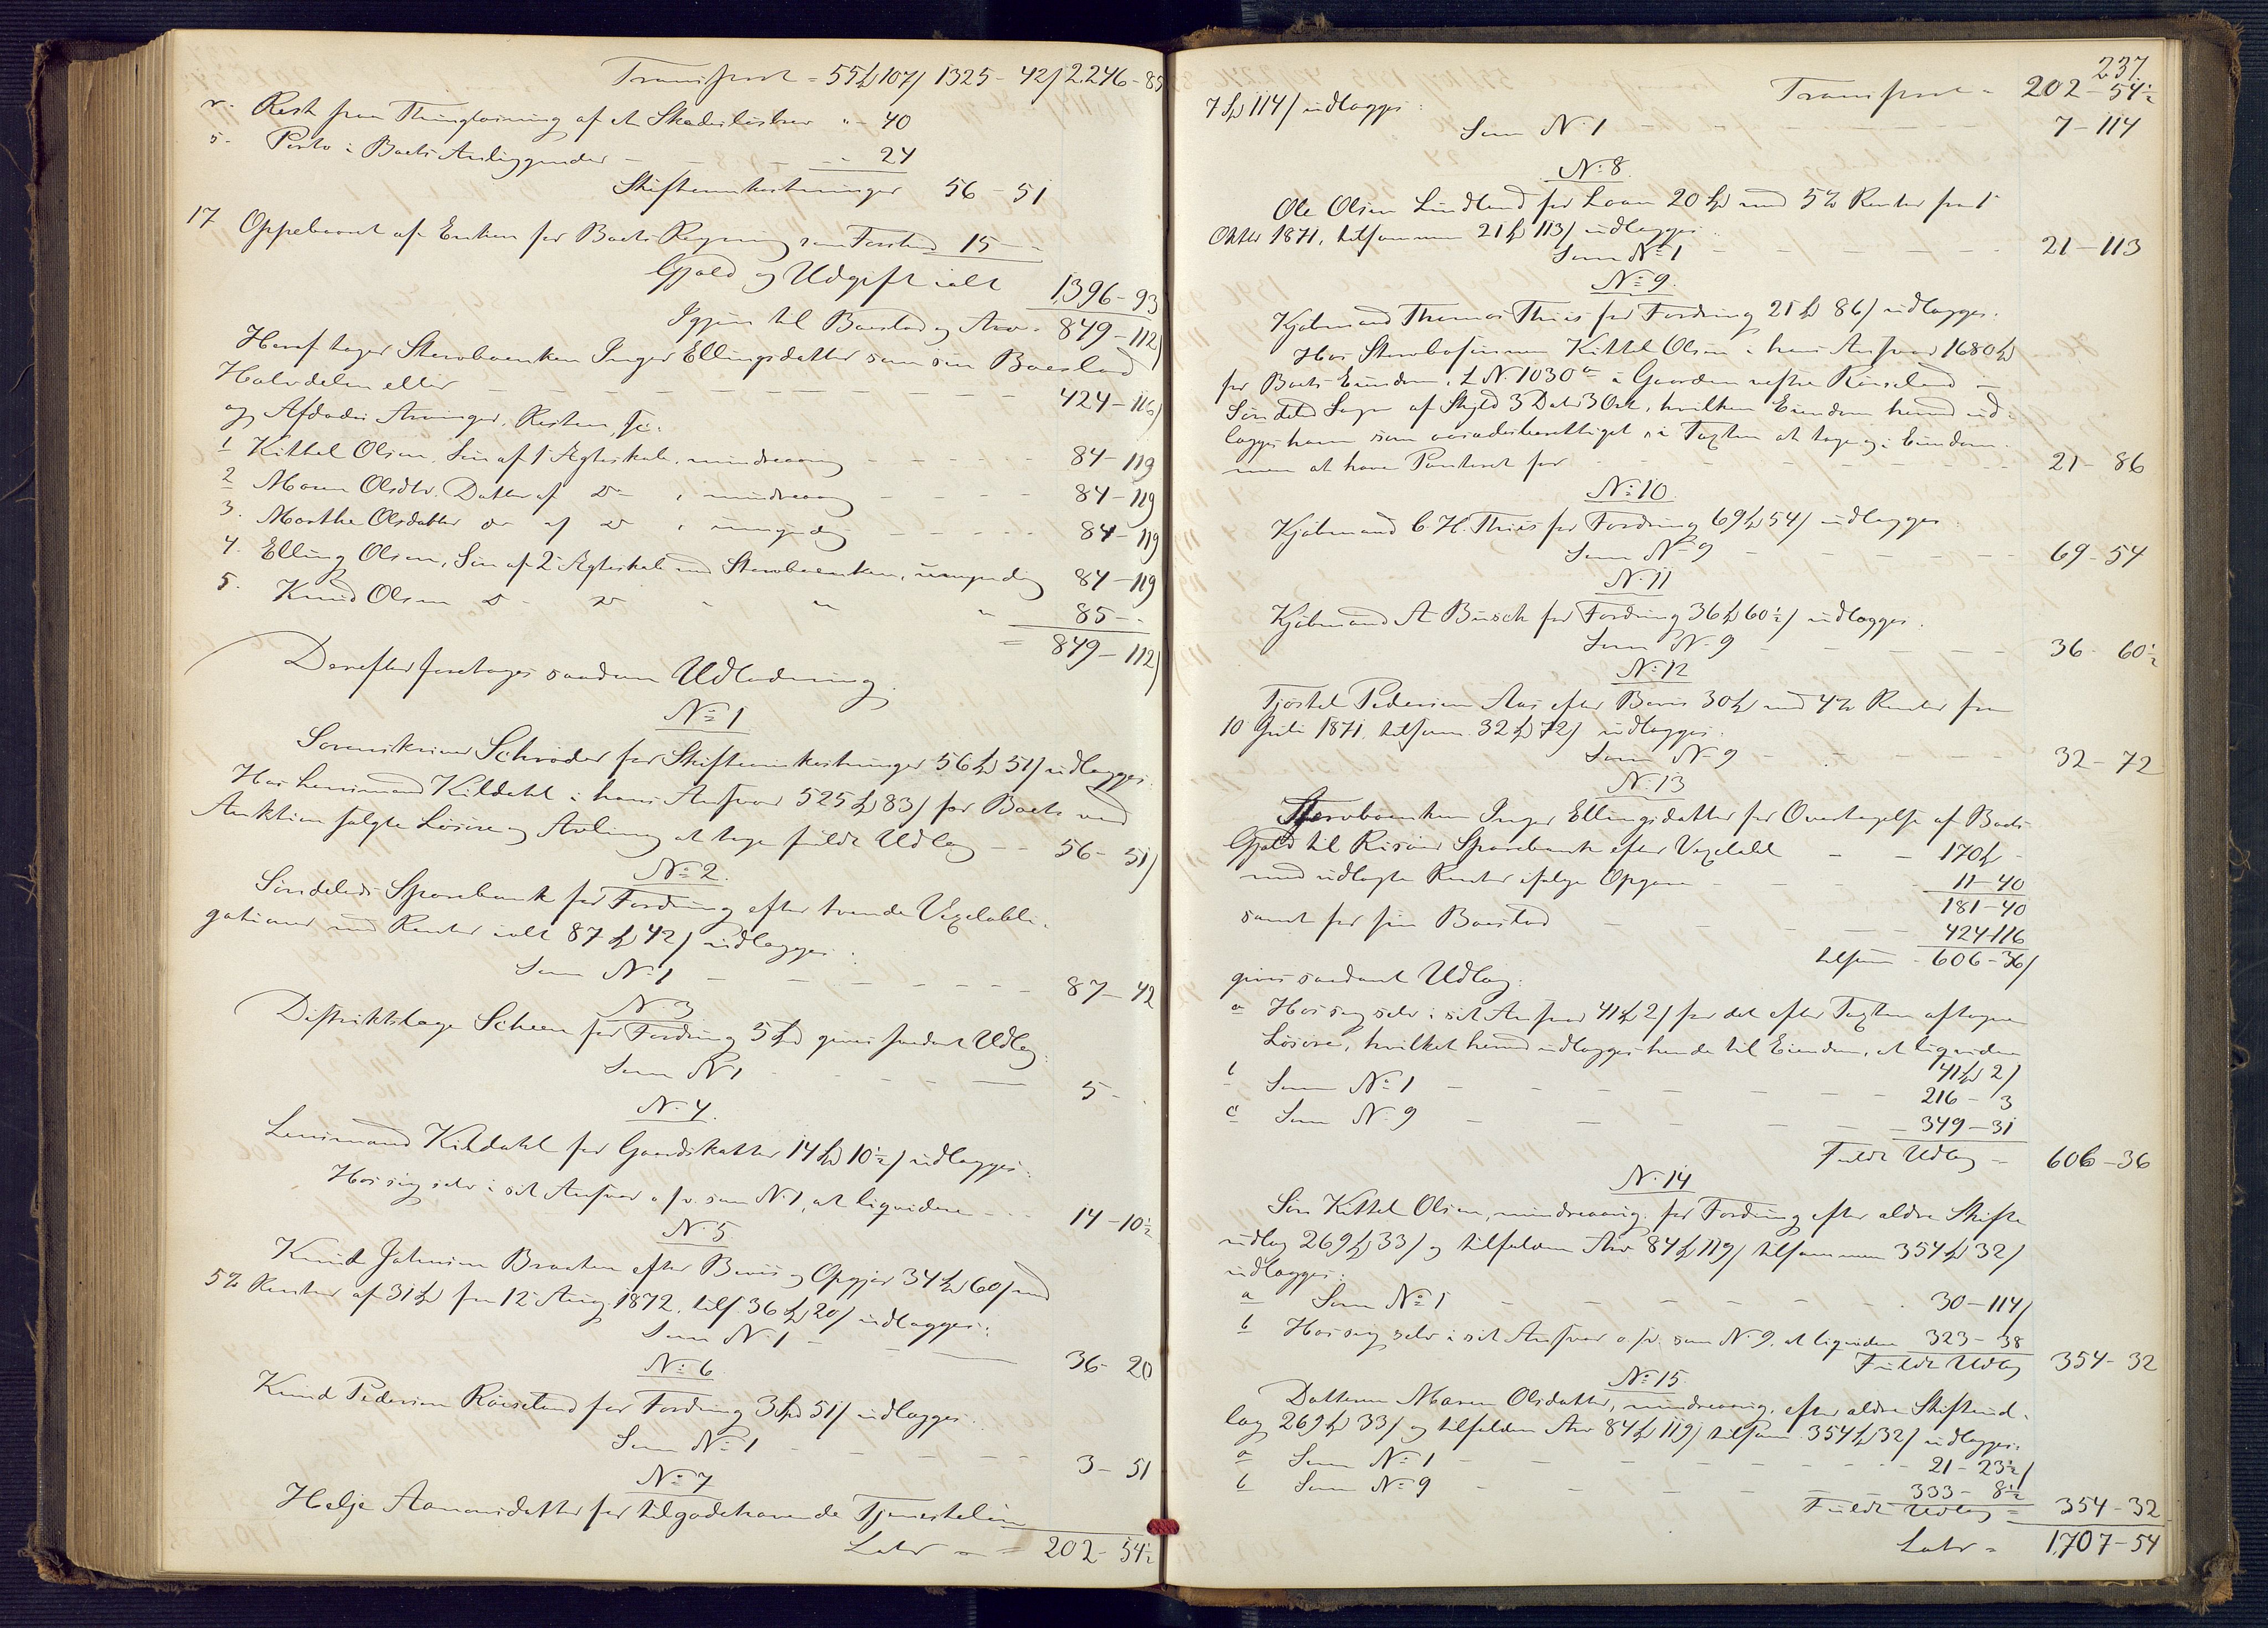 Transport = 55 107/ 1325 - 42/ 2,246 - 85
r. Rest paa Thinglæsning af et Skadesløsbrev " - 40
s. Porto i Boets Anliggender - - - 24
Skifteomkostninger 56 - 51
17 Oppebaaret af Enken for Boets Regning som Forskud 15 - "
Gjæld og Udgift ialt 1,396 - 93
Igjen til Boeslod og Arv = 849 - 112/
Heraf tager Stervboenken Inger Ellingsdatter som sin Boeslod
Halvdelen eller - - - 424 - 116/
og Afdødes Arvinger Resten,
1 Kittel Olsen, Søn af 1 Ægteskab, mindreaarig - - - 84 - 119
2 Maren Olsdtr. Datter af Do , mindreaarig - - - 84 - 119
3. Marthe Olsdatter do af do , umyndig - - - 84 - 119
4. Elling Olsen, Søn af 2 Ægteskab med Stervboenken, umyndig 84 - 119
5. Knud Olsen do - do " " " 85 - -
= 849 - 112/
Derefter foretages saadan Udlodning.
No 1
Sorenskriver Schrøder for Skifteomkostninger 56 51/ udlægges
Hos Lensmand Kildahl i hans Ansvar 525 83/ for Boets ved
Auktion solgte Løsøre og Avling at tage fuldt Udlæg - - 56 - 51/
No 2.
Søndeleds Sparebank for Fordring efter tvende Vexelobli-
gationer med Renter ialt 87 42/ udlægges:
Som No 1 - - - 87 - 42
No 3
Distriktslæge Scheen for Fordring 5 gives saadant Udlæg:
Som No 1 - - - 5 - .
No 4.
Lensmand Kildahl for Gaardskatter 14 10½/ udlægges:
Hos sig selv i sit Ansvar o.s.v. som No 1, at liqvidere - - - 14 - 10½
No 5
Knud Johnsen Braaten efter Beviis og Opgjør 34 60/ med
5% Renter af 31 fra 12 Aug 1872, tils 36 20/ udlægges:
Som No 1 - - 36 - 20
No 6
Knud Pedersen Røiseland for Fordring 3 51/ udlægges
Som No 1 - - - 3 - 51
No 7
Helje Aanonsdatter for tilgodehavende Tjenesteløn
Latr = 202 - 54½
237.
Transport = 202 - 54½
7 114/ udlægges:
Som No 1 - - 7 - 114
No 8.
Ole Olsen Lindland for Laan 20 med 5% Renter fra 1
Oktbr 1871, tilsammen 21 113/ udlægges:
Som No 1 - - - 21 - 113
No 9.
Kjøbmand Thomas Thiis for Fordring 21 86/ udlægges.
Hos Stervbosønnen Kittel Olsen i hans Ansvar 1680
for Boets Eiendom, L No 1030a i Gaarden vestre Røiseland i
Søndeled Sogn af Skyld 3 Daler 3 Ort, hvilken Eiendom herved ud-
lægges ham som aasædesberettiget, i Taxten at tage og i Eiendom-
men at have Panteret for - - - 21 - 86
No 10.
Kjøbmand C. H. Thiis for Fordring 69 54/ udlægges
Som No 9 - - - 69 - 54
No 11
Kjøbmand A Busch for Fordring 36 60½/ udlægges.
Som No 9 - - - 36 - 60½
No 12
Tjøstel Pedersen Aas efter Beviis 30 med 4% Renter fra
10 Juli 1871, tilsam. 32 72/ udlægges.
Som No 9 - - - 32 - 72
No 13
Stervboenken Inger Ellingsdatter for Overtagelse af Boets
Gjæld til Risøer Sparebank efter Vexelobl - - 170 -
med udlagte Renter ifølge Opgave - - - 11 - 40
181 - 40
samt for sin Boeslod - - - 424 - 116
tilsam = 606 - 36/
gives saadant Udlæg:
a Hos sig selv i sit Ansvar 41 2/ for det efter Taxten aftagne
Løsøre, hvilket herved udlægges hende til Eiendom, at liqvidere
41 2/
b Som No 1 - - - 216 - 3
c Som No 9 - - - 349 - 31
Fuldt Udlæg = 606 - 36
No 14
Søn Kittel Olsen, mindreaarig for Fordring efter ældre Skifte
udlæg 269 33/ og tilfalden Arv 84 119/ tilsammen 354 32/
udlægges:
a Som No 1 - - - 30 - 114/
b Hos sig selv i sit Ansvar o.s.v. som No 9, at liqvidere 323 - 38
Fuldt Udlæg 354 - 32
No 15.
Datteren Maren Olsdatter, mindreaarig, efter ældre Skifteud-
læg 269 33/ og tilfalden Arv 84 119/ tilsam. 354 32/ udlægges:
a Som No 1 - - - 21 - 23½/
b Som No 9 - - - 333 - 8½
Fuldt Udlæg = 354 - 32
Latr = 1,707 - 54